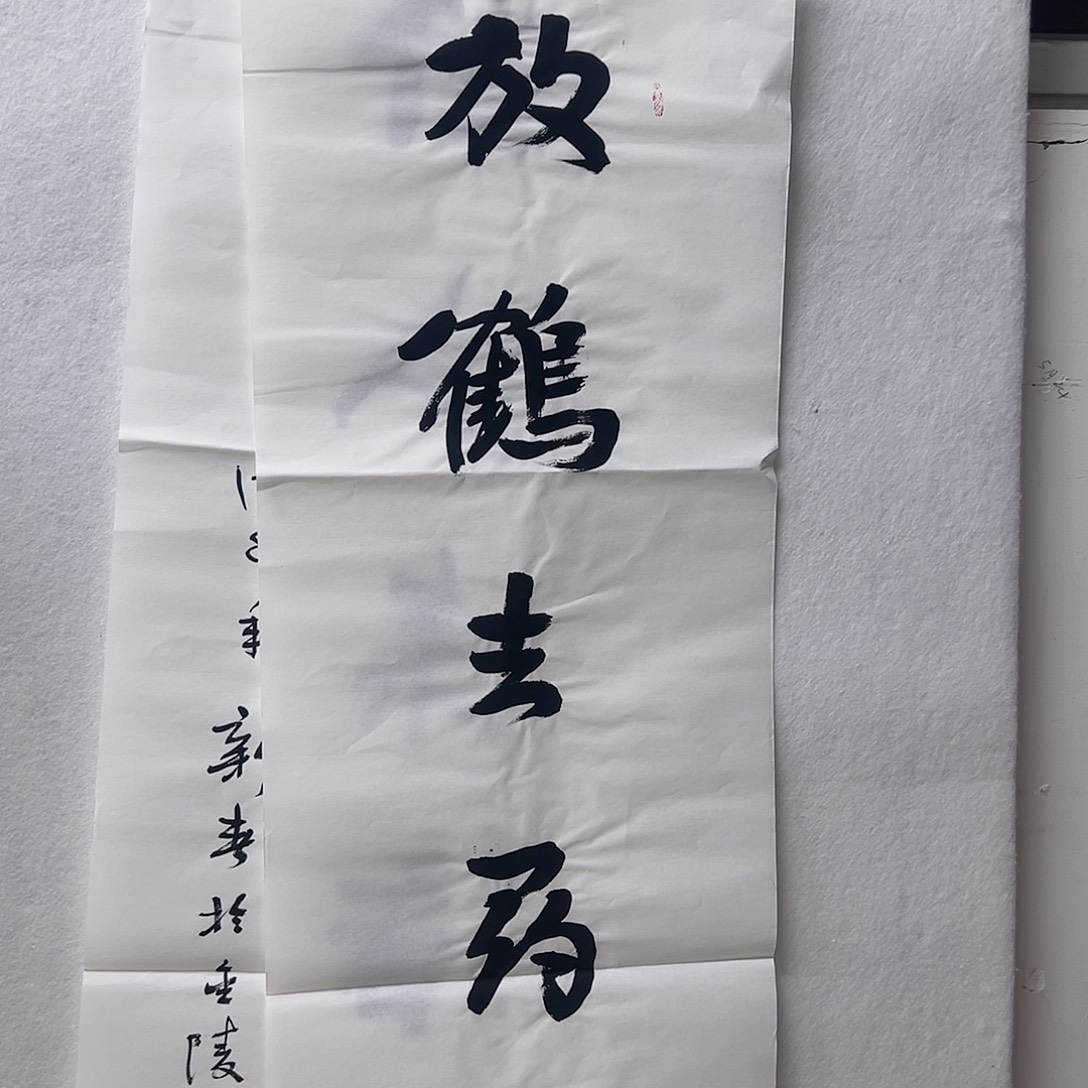 放鶴去尋
年新春於金陵